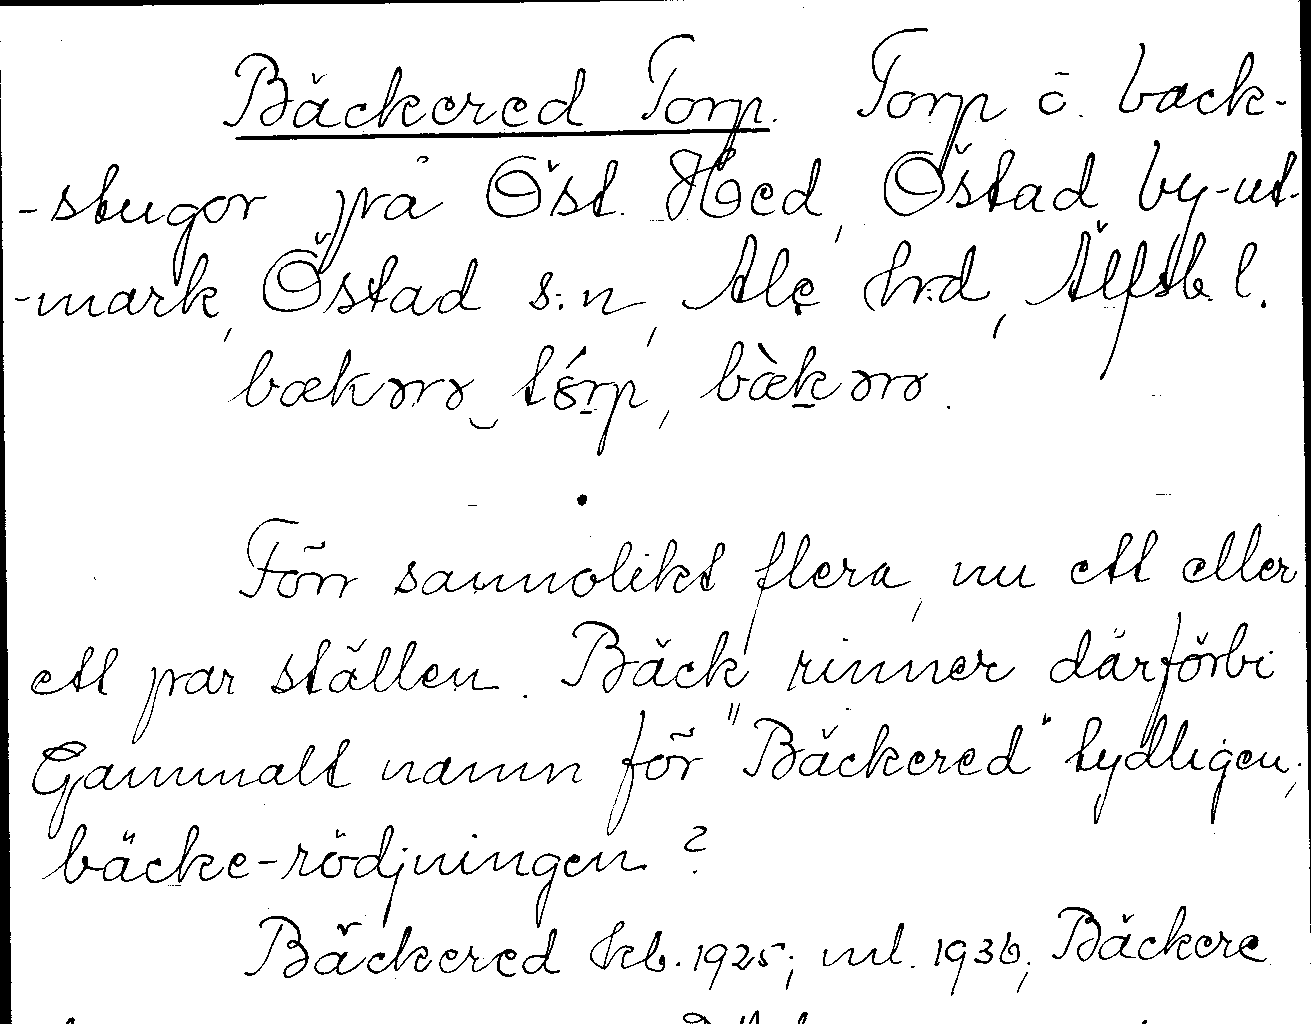 Bäckered Torp. Torp o. back-
-stugor på Öst. Hed, Östad by-ut-
-mark, Östad s:n, Ale hrd, Älfsb. l.
bækərə tǿrp, bæ̀kərə.
Förr sannolikt flera, nu ett eller
ett par ställen. Bäck rinner därförbi
Gammalt namn för "Bäckered" tydligen;
bäcke-rödjningen?
Bäckered kb. 1925; ml. 1936; Bäckere